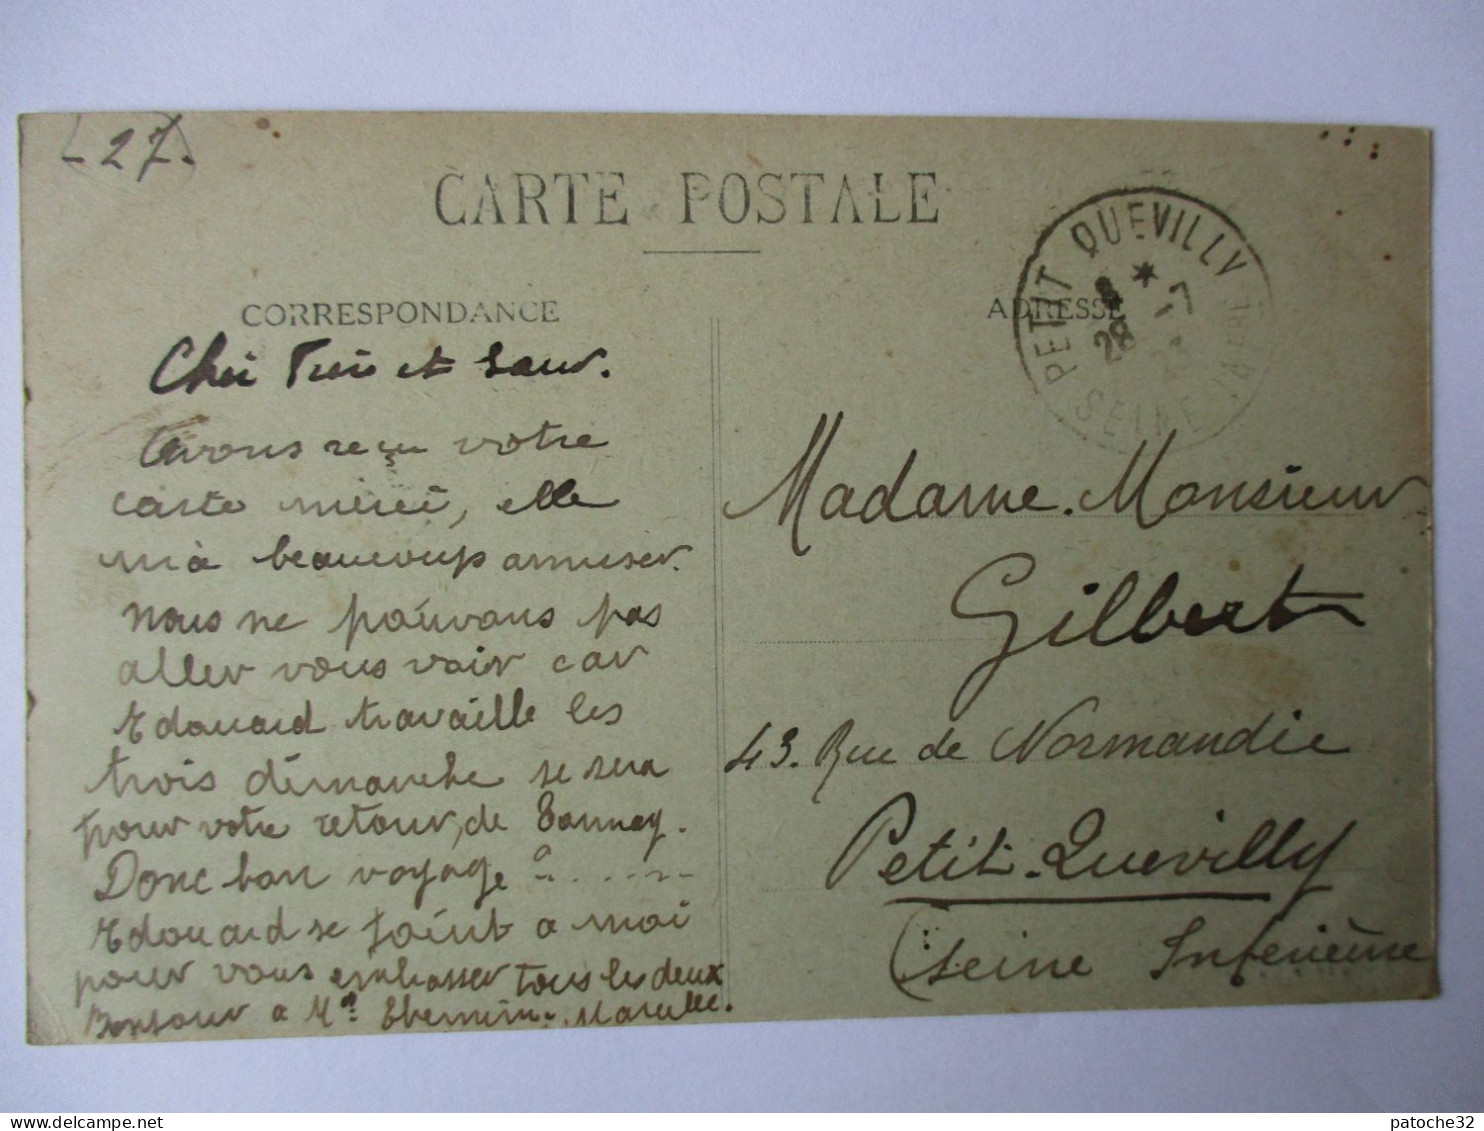 - 27 -
CARTE POSTALE
CORRESPONDANCE
Cher Frère et Sœur.
Avons reçu votre
carte merci, elle
m'a beaucoup amuser.
Nous ne pouvons pas
aller vous voir car
Edouard travaille les
trois dimanche se sera
pour votre retour, de Tannay.
Donc bon voyage à......
Edouard se joint a moi
pour vous embrasser tous les deux
Bonjour a Marcelle.
ADRESSE
PETIT QUEVILLY
SEINE INFRE
8 * -7
28
Madame. Monsieur
Gilbert
43. Rue de Normandie
Petit-Quevilly
(Seine Inferieure
patoche32